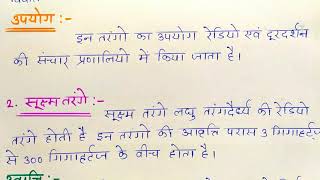 उपयोग :-
इन तरंगो का उपयोग रेडियो एवं दूरदर्शन
की संचार प्रणालियो में किया जाता है।
2. सूक्ष्म तरंगे :-
सूक्ष्म तरंगे लघु तरंगदैर्ध्य की रेडियो
तरंगे होती है इन तरंगो की आवृत्ति परास 3 गिगाहर्ट्ज
से 300 गिगाहर्टज के बीच होता है।